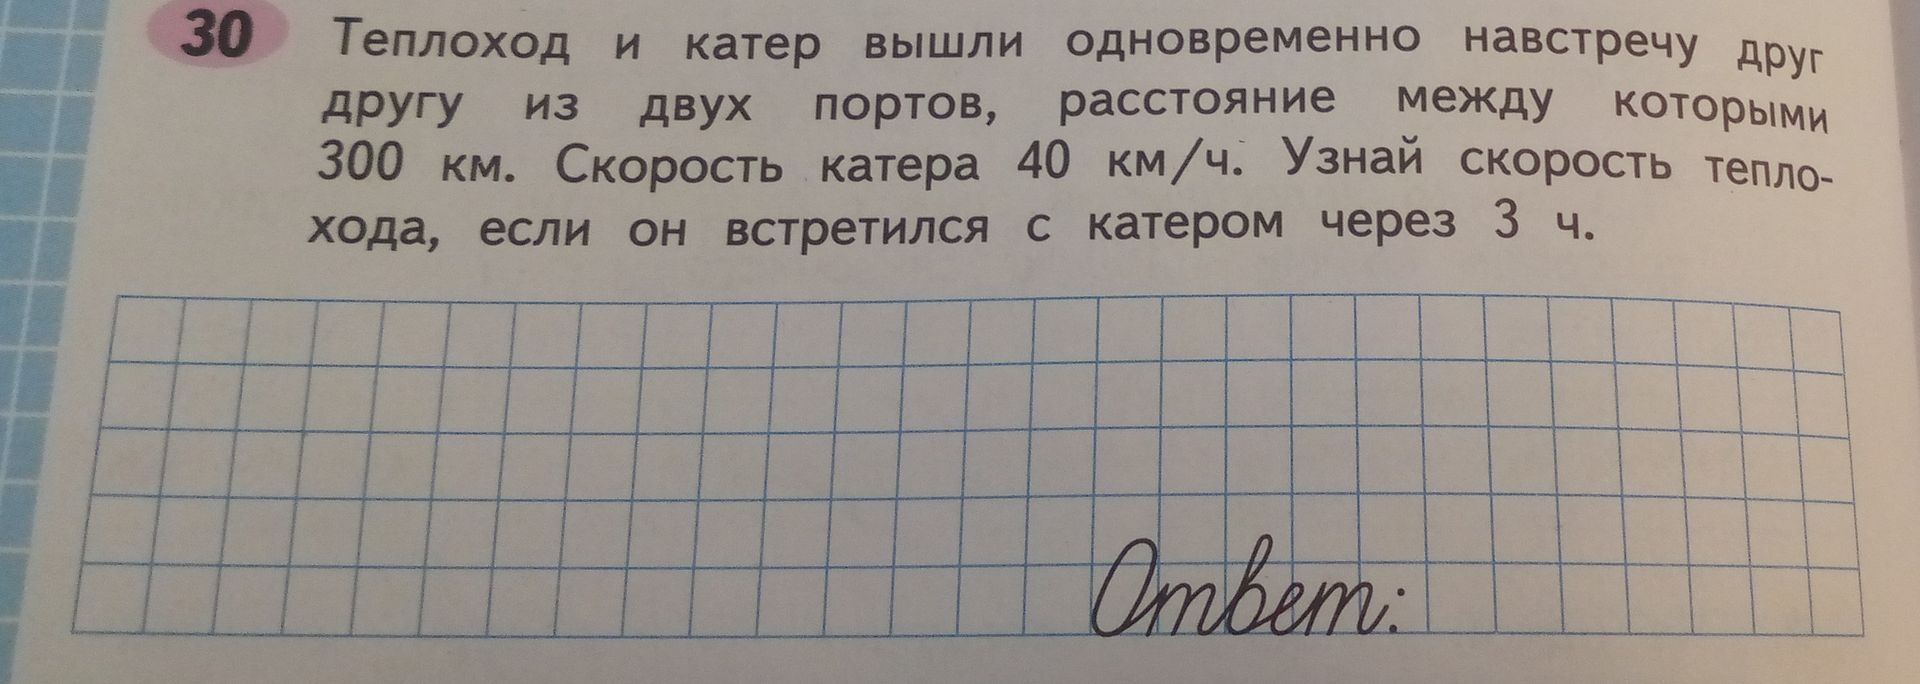 30 Теплоход и катер вышли одновременно навстречу друг
другу из двух портов, расстояние между которыми
300 км. Скорость катера 40 км/ч. Узнай скорость тепло-
хода, если он встретился с катером через 3 ч.
Ответ: